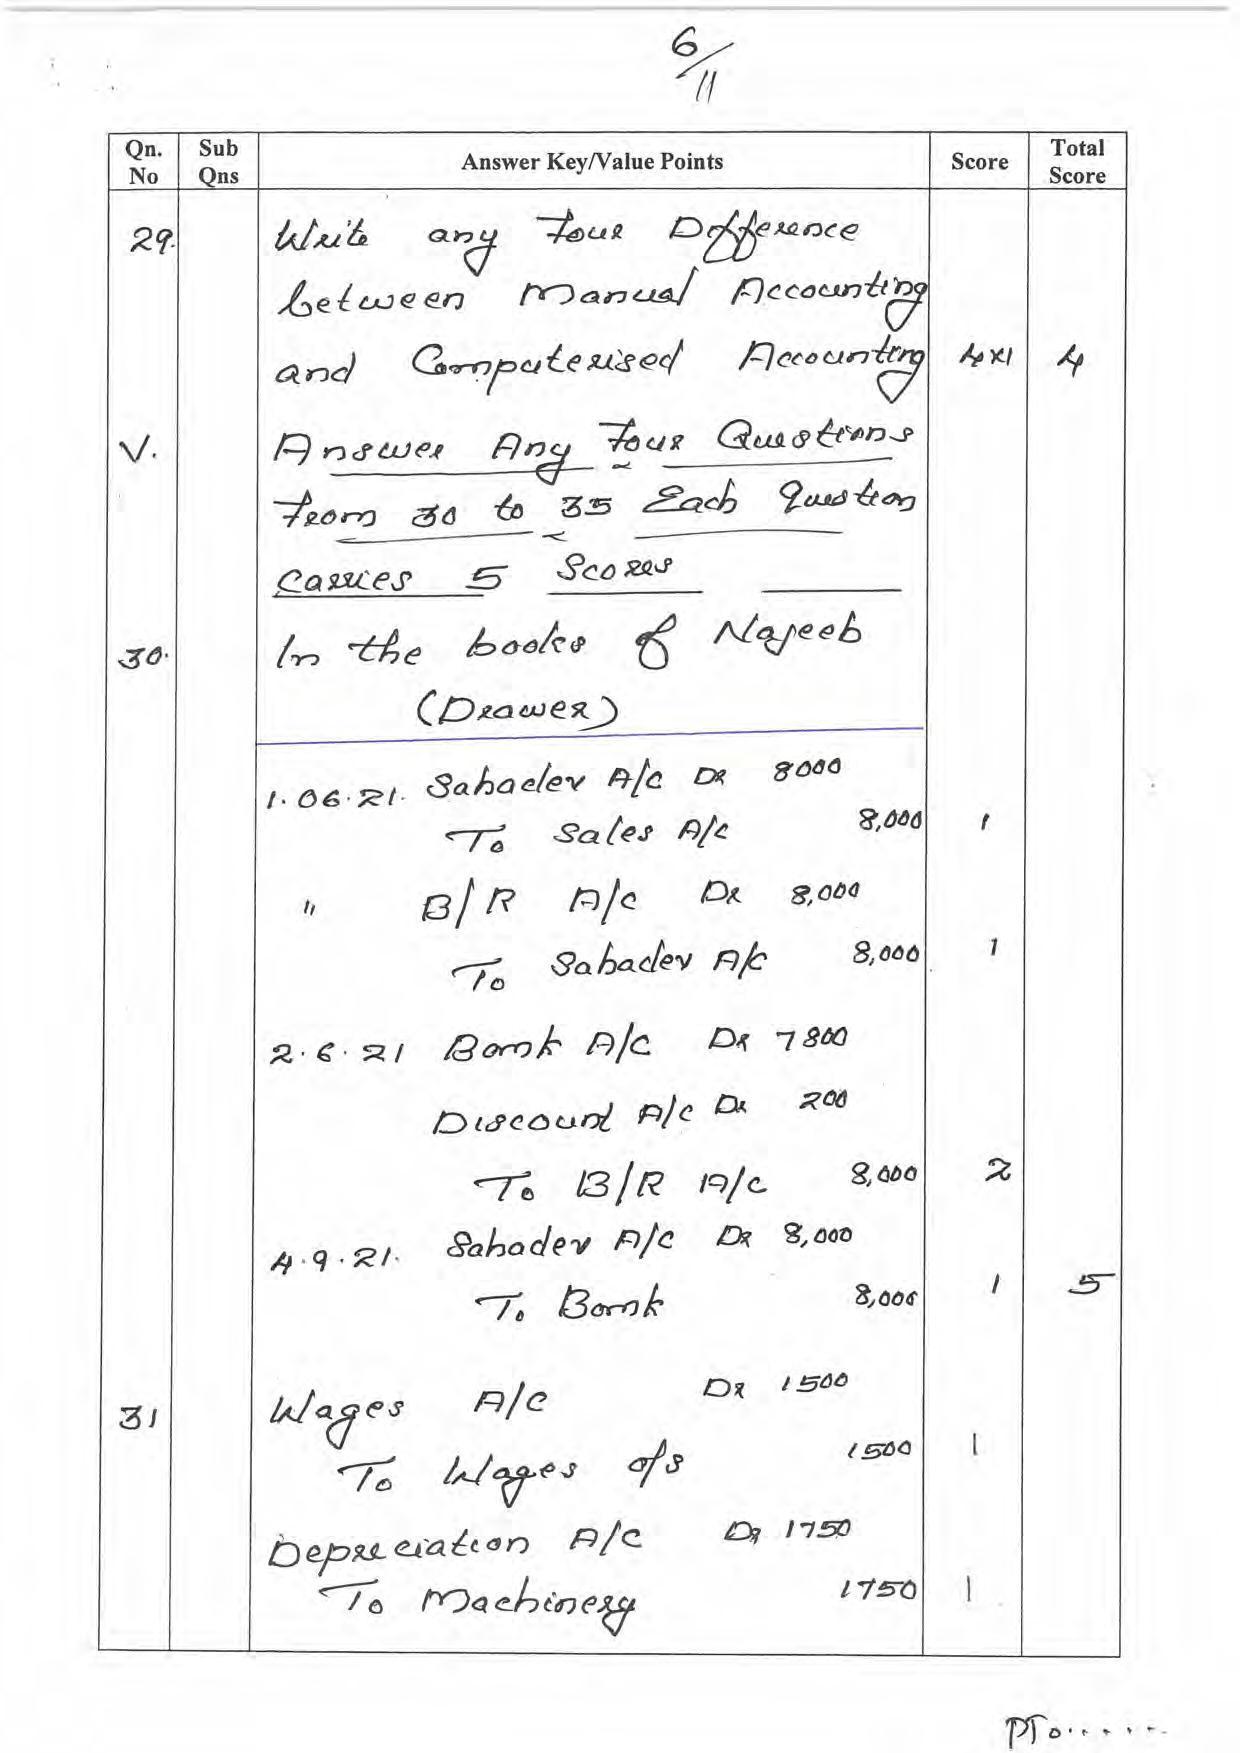 6/11
Qn. No | Sub Qns | Answer Key/Value Points | Score | Total Score
29. Write any Four Difference
between Manual Accounting
and Computerised Accounting 4x1 4
V. Answer Any Four Questions
From 30 to 35 Each Question
Carries 5 Scores
30. In the books of Najeeb
(Drawer)
1.06.21. Sahadev A/c Dr 8000
To Sales A/c 8,000 1
" B/R A/c Dr 8,000
To Sahadev A/c 8,000 1
2.6.21 Bank A/c Dr 7800
Discount A/c Dr 200
To B/R A/c 8,000 2
4.9.21. Sahadev A/c Dr 8,000
To Bank 8,000 1 5
31 Wages A/c Dr 1500
To Wages o/s 1500 1
Depreciation A/c Dr 1750
To Machinery 1750 1
PTO......